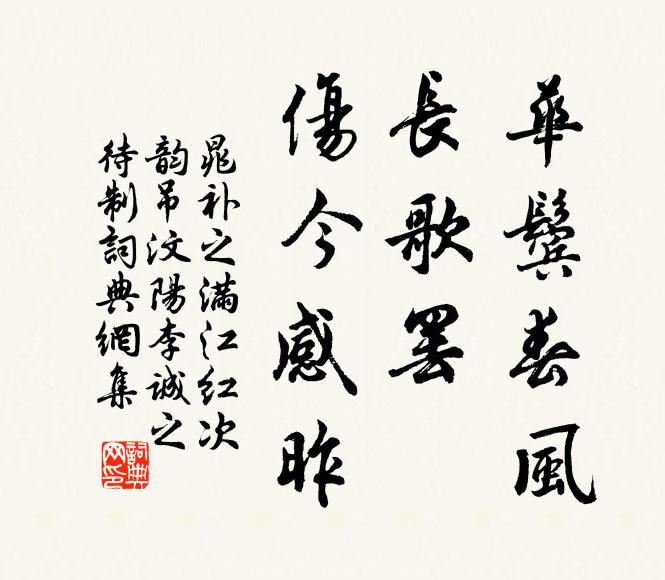 華鬢春風
長歌罷
傷今感昨
晁补之满江红次
韵吊汶陽李誠之
待制詞典網集
詞典
网印